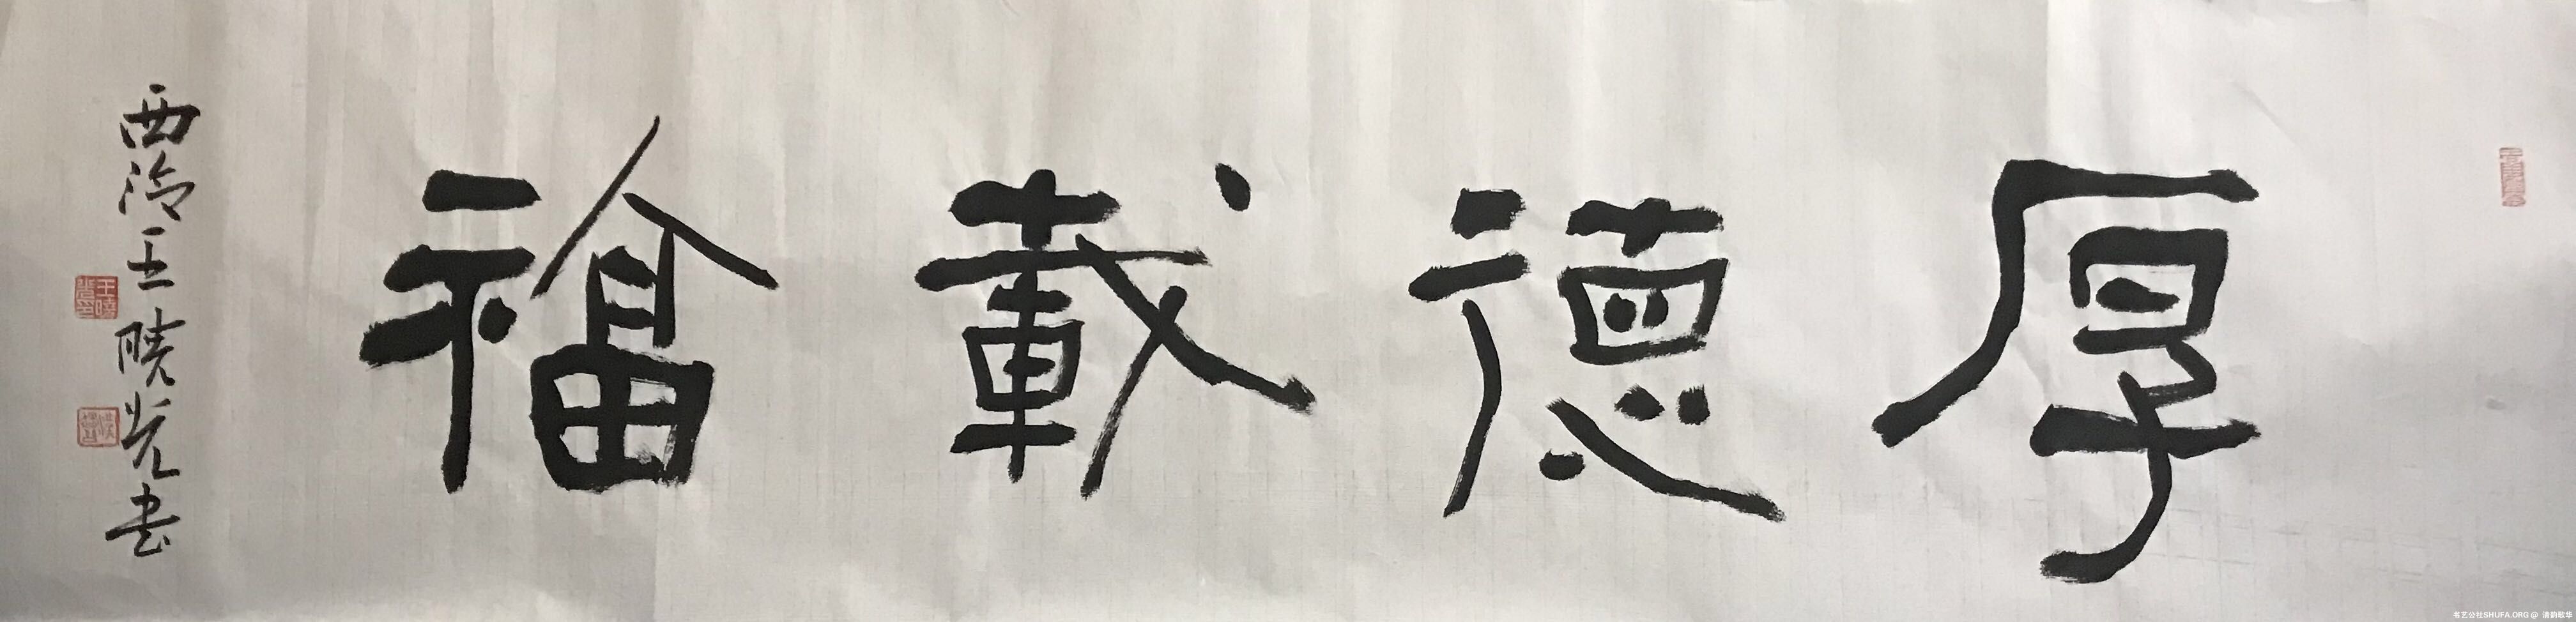 厚德載福
西泠王曉光书
王曉光印
书艺公社SHUFA.ORG @ 清韵歌华